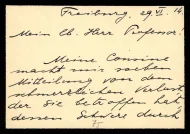 Freiburg 29.VI.14
Mein lb. Herr Professor:
Meine Cousine
macht mir soeben
Mitteilung von dem
schmerzlichen Verlust,
der Sie betroffen hat,
dessen Schwere durch